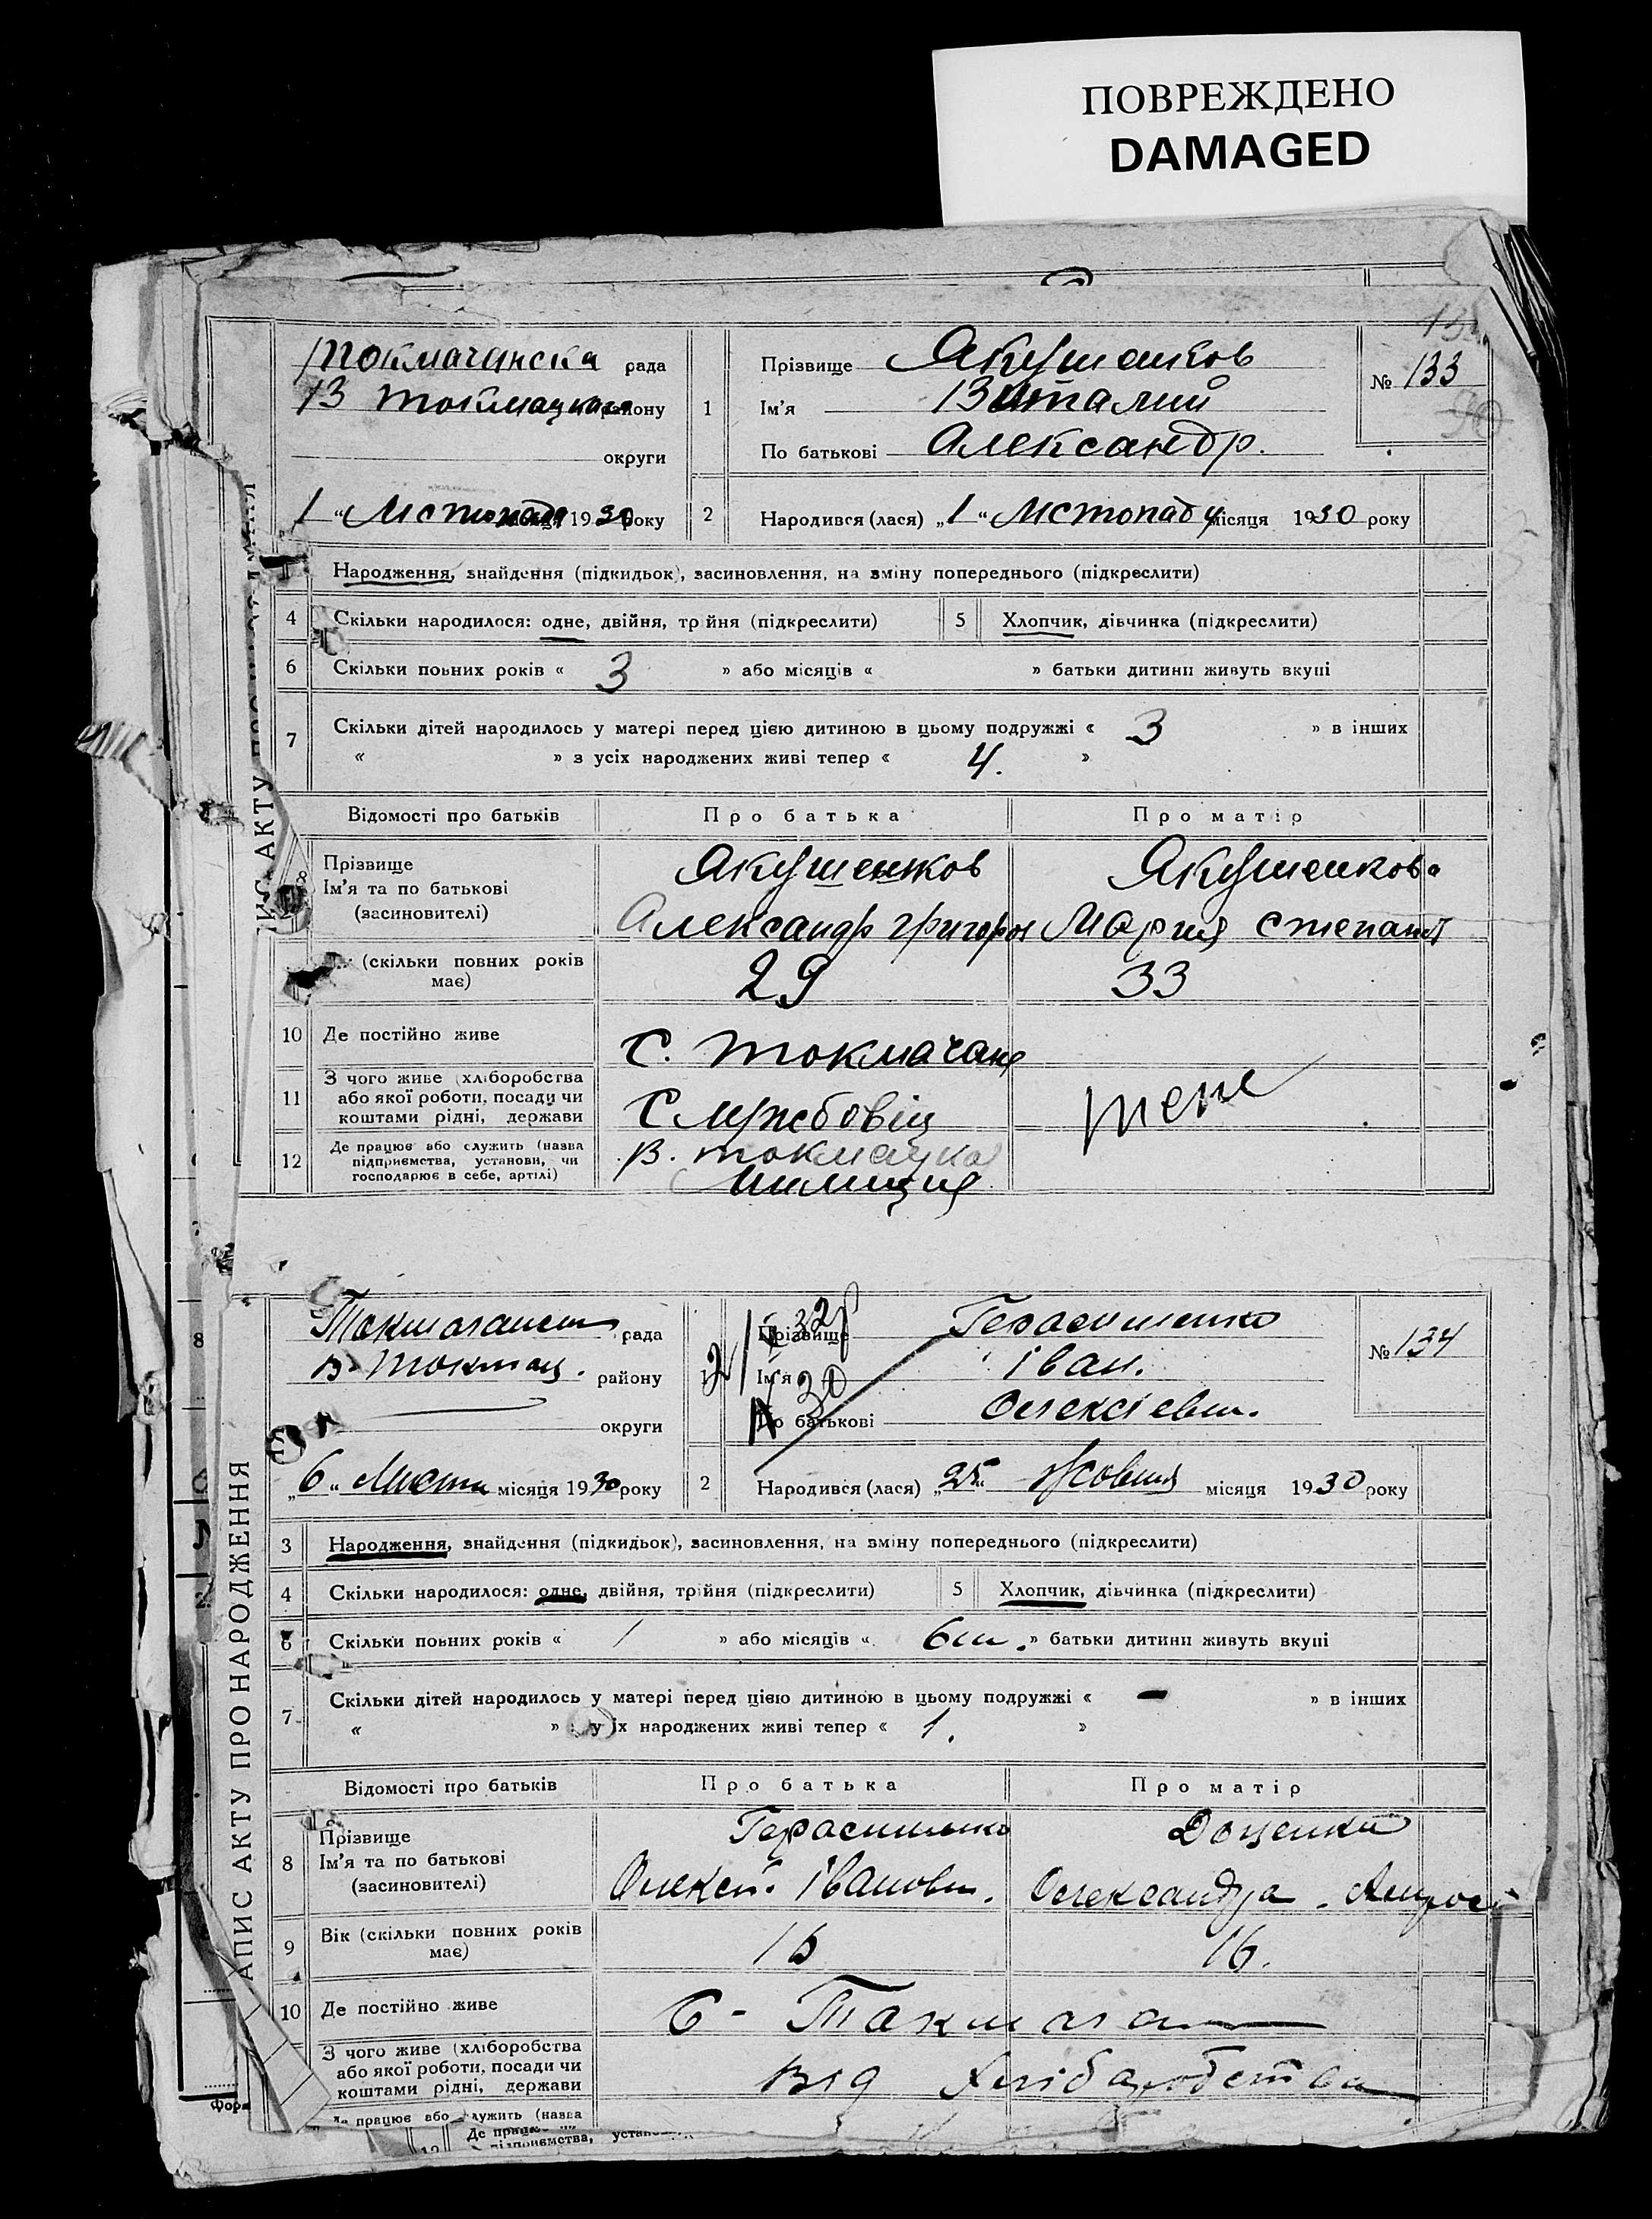 ПОВРЕЖДЕНО
DAMAGED
Токмачанска рада
В Токмацкого району
округи
Прізвище Якушенков
Ім'я Виталий
По батькові Александр.
№ 133
1
„1“ Листопада 1930 року
2 Народився (лася) „1“ Листопаду місяця 1930 року
Народження, знайдення (підкидьок), засиновлення, на зміну попереднього (підкреслити)
4 Скільки народилося: одне, двійня, трійня (підкреслити) 5 Хлопчик, дівчинка (підкреслити)
6 Скільки повних років « 3 » або місяців « » батьки дитини живуть вкупі
7 Скільки дітей народилось у матері перед цією дитиною в цьому подружжі « 3 » в інших
« » з усіх народжених живі тепер « 4. »
Відомості про батьків Про батька Про матір
8 Прізвище
Ім'я та по батькові
(засиновителі)
Якушенков Якушенкова
Александр Григоров Мария Степан
(скільки повних років має) 29 33
10 Де постійно живе С. Токмачани
11 З чого живе (хліборобства або якої роботи, посади чи коштами рідні, держави Службовіц
12 Де працює або служить (назва підприємства, установи, чи господарює в себе, артілі) В. Токмацкая
Милиция
рада
В-Токмац. району
округи
1 Прізвище Герасименко
Ім'я Іван.
По батькові Олексієвич.
№ 134
32
30
„6“ Листоп місяця 1930 року
2 Народився (лася) „25“ Жовтня місяця 1930 року
3 Народження, знайдення (підкидьок), засиновлення, на зміну попереднього (підкреслити)
4 Скільки народилося: одне, двійня, трійня (підкреслити) 5 Хлопчик, дівчинка (підкреслити)
6 Скільки повних років « 1 » або місяців « 6 м. » батьки дитини живуть вкупі
7 Скільки дітей народилось у матері перед цією дитиною в цьому подружжі « - » в інших
« » з усіх народжених живі тепер « 1. »
Відомості про батьків Про батька Про матір
8 Прізвище
Ім'я та по батькові
(засиновителі)
Герасименко Доценко
Олексій Іванович. Олександра
9 Вік (скільки повних років має) 16.
10 Де постійно живе С- Токмача
З чого живе (хліборобства або якої роботи, посади чи коштами рідні, держави Від Хліборобства
працює або служить (назва
Де працює
підприємства, устано
АПИС АКТУ ПРО НАРОДЖЕННЯ